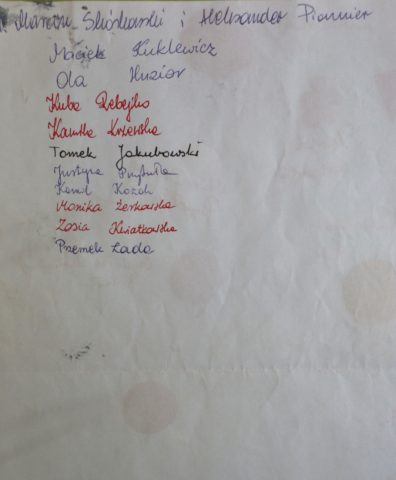 Marcin Skórkowski i Aleksander Pionnier
Maciek Kuklewicz
Ola Huzior
Kuba Rębejko
Kamila Krzewska
Tomek Jakubowski
Justyna Przybuła
Kamil Kozak
Monika Żerkowska
Zosia Kwiatkowska
Przemek Łada